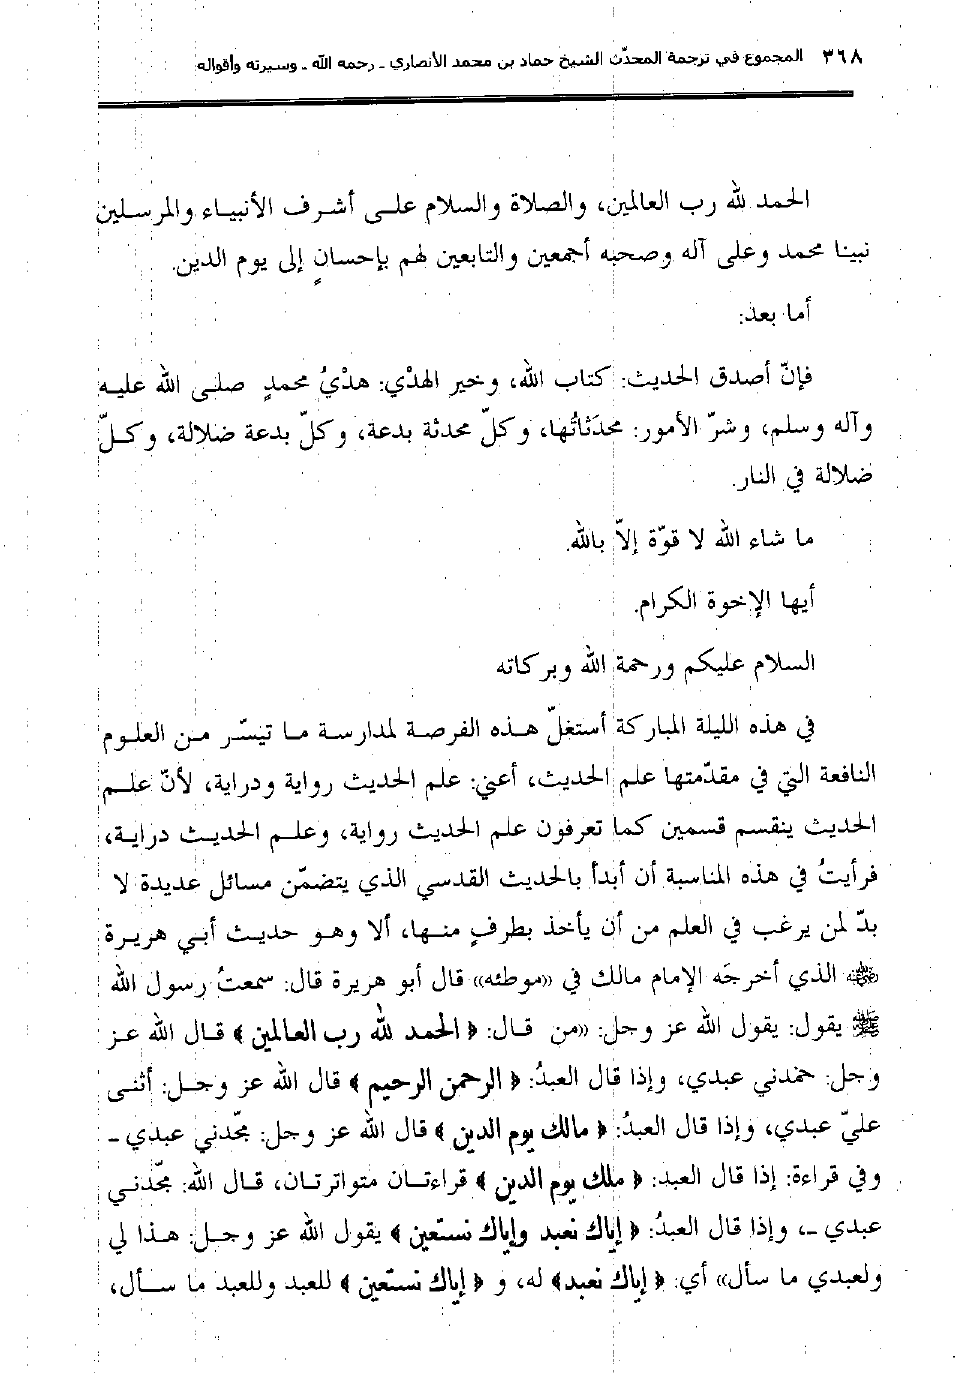 ٣٦٨ المجموع في ترجمة المحدّث الشيخ حماد بن محمد الأنصاري ـ رحمه الله ـ وسيرته وأقواله
الحمد لله رب العالمين، والصلاة والسلام على أشرف الأنبياء والمرسلين
نبينا محمد وعلى آله وصحبه أجمعين والتابعين لهم بإحسانٍ إلى يوم الدين.
أما بعد:
فإنّ أصدق الحديث: كتاب الله، وخير الهدْي: هدْيُ محمدٍ صلى الله عليه
وآله وسلم، وشرّ الأمور: محدَثاتُها، وكلّ محدثة بدعة، وكلّ بدعة ضلالة، وكلّ
ضلالة في النار.
ما شاء الله لا قوّة إلاّ بالله.
أيها الإخوة الكرام.
السلام عليكم ورحمة الله وبركاته
في هذه الليلة المباركة أستغلّ هذه الفرصة لمدارسة ما تيسّر من العلوم
النافعة التي في مقدّمتها علم الحديث، أعني: علم الحديث رواية ودراية، لأنّ علم
الحديث ينقسم قسمين كما تعرفون علم الحديث رواية، وعلم الحديث دراية،
فرأيتُ في هذه المناسبة أن أبدأ بالحديث القدسي الذي يتضمّن مسائل عديدة لا
بدّ لمن يرغب في العلم من أن يأخذ بطرفٍ منها، ألا وهو حديث أبي هريرة
رضي الله عنه الذي أخرجَه الإمام مالك في «موطئه» قال أبو هريرة قال: سمعتُ رسول الله
ﷺ يقول: يقول الله عز وجل: «من قال: ﴿ الحمد لله رب العالمين ﴾ قال الله عز
وجل: حمَدني عبدي، وإذا قال العبدُ: ﴿ الرحمن الرحيم ﴾ قال الله عز وجل: أثنى
عليّ عبدي، وإذا قال العبدُ: ﴿ مالك يوم الدين ﴾ قال الله عز وجل: مجّدني عبدي ـ
وفي قراءة: إذا قال العبد: ﴿ ملك يوم الدين ﴾ قراءتان متواترتان، قال الله: مجّدني
عبدي ـ، وإذا قال العبدُ: ﴿ إياك نعبد وإياك نستعين ﴾ يقول الله عز وجل: هذا لي
ولعبدي ما سأل» أي: ﴿ إياك نعبد﴾ له، و ﴿ إياك نستعين ﴾ للعبد وللعبد ما سأل،